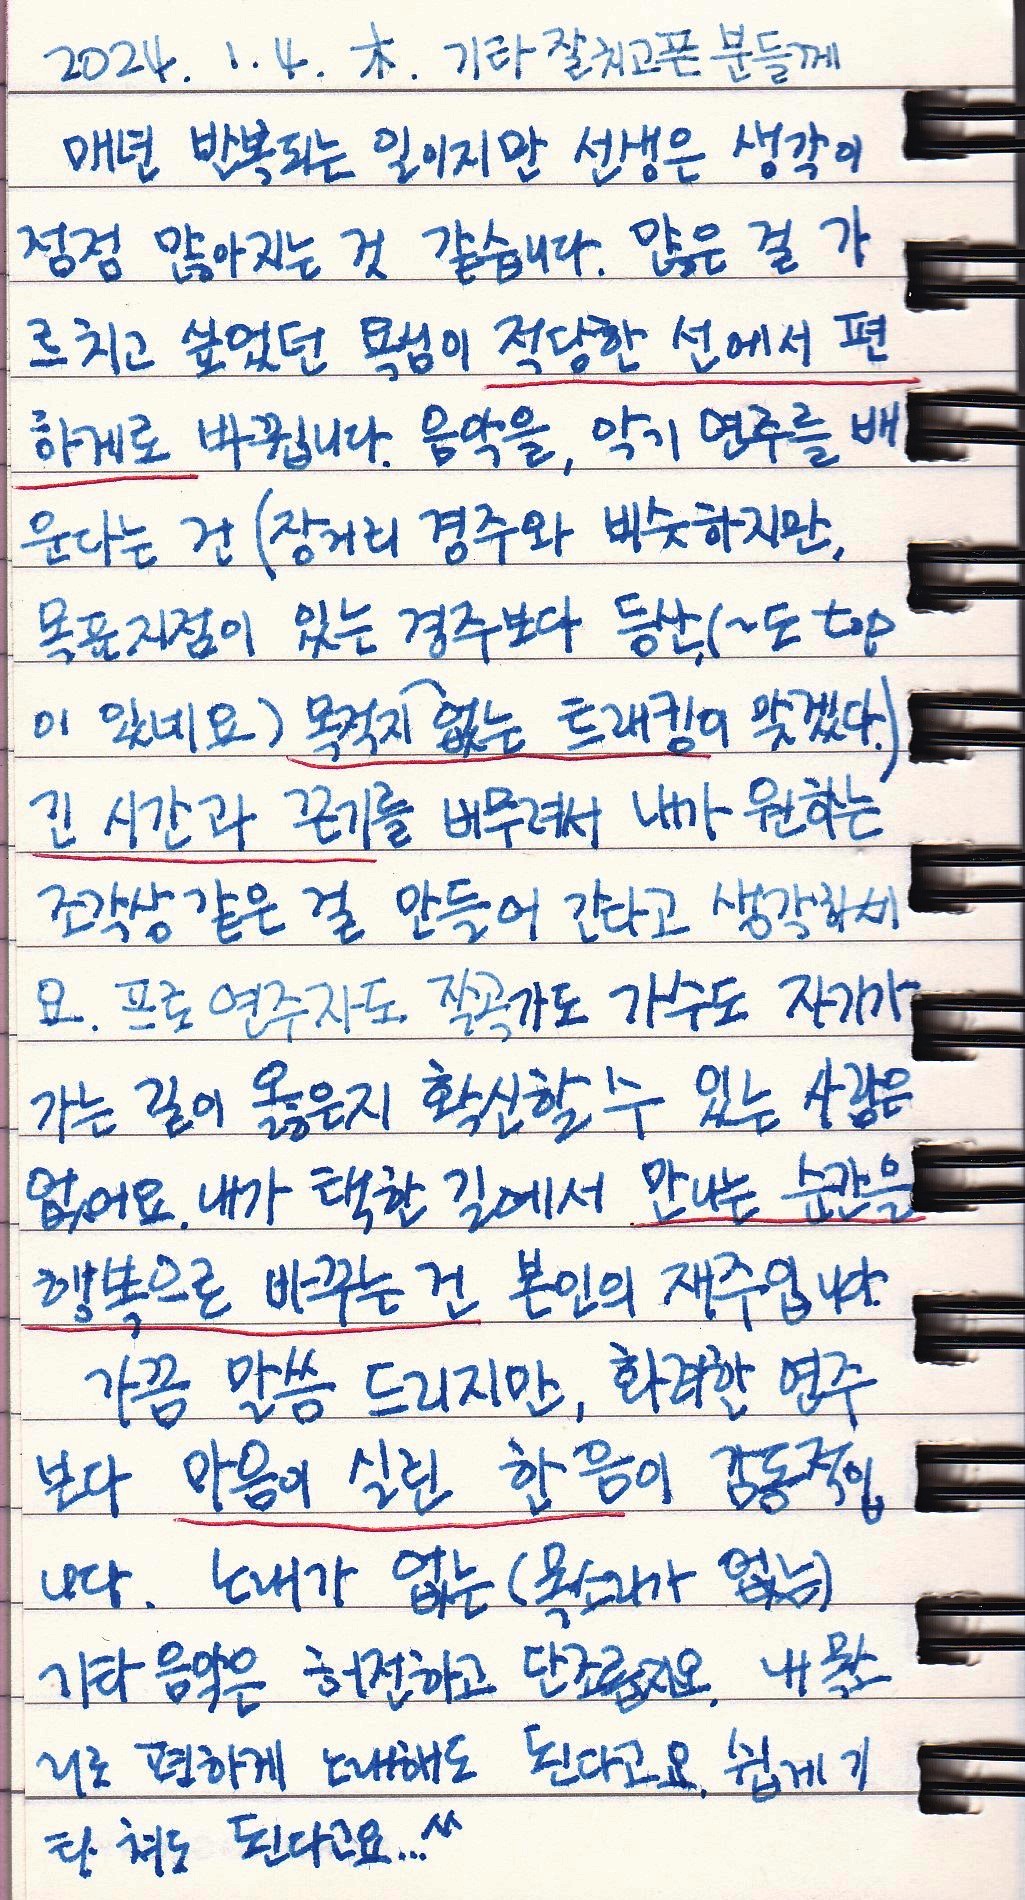 2024. 1. 4. 木. 기타 잘치고픈 분들께
매년 반복되는 일이지만 선생은 생각이
점점 많아지는 것 같습니다. 많은 걸 가
르치고 싶었던 욕심이 적당한 선에서 편
하게로 바뀝니다. 음악을, 악기 연주를 배
운다는 건 (장거리 경주와 비슷하지만,
목표지점이 있는 경주보다 등산,(~도 top
이 있네요) 목적지 없는 트래킹이 맞겠다.)
긴 시간과 끈기를 버무려서 내가 원하는
조각상 같은 걸 만들어 간다고 생각하세
요. 프로 연주자도 작곡가도 가수도 자기가
가는 길이 옳은지 확신할 수 있는 사람은
없어요. 내가 택한 길에서 만나는 순간을
행복으로 바꾸는 건 본인의 재주입니다.
가끔 말씀 드리지만, 화려한 연주
보다 마음이 실린 한 음이 감동적입
니다. 노래가 없는 (목소리가 없는)
기타 음악은 허전하고 단조롭지요. 내 목소
리로 편하게 노래해도 된다고요. 쉽게 기
타 쳐도 된다고요...^^